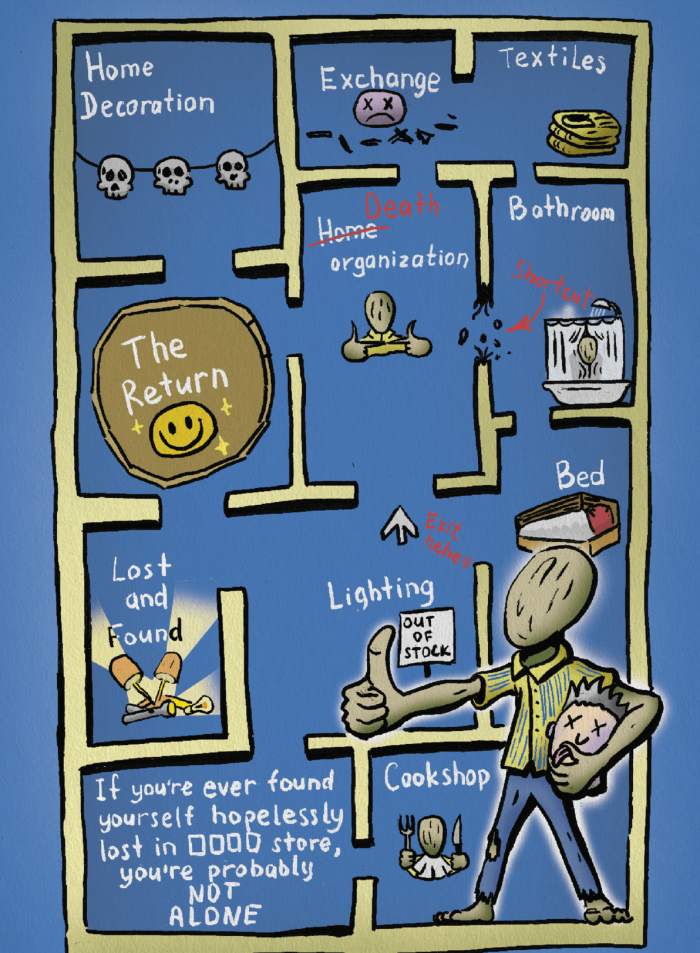 Home
Decoration
Exchange
Textiles
Death
Home
organization
Bathroom
Shortcut
The
Return
Bed
Exit
Lost
and
Found
Lighting
OUT
OF
STOCK
Cookshop
If you're ever found
yourself hopelessly
lost in □□□□ store,
you're probably
NOT
ALONE